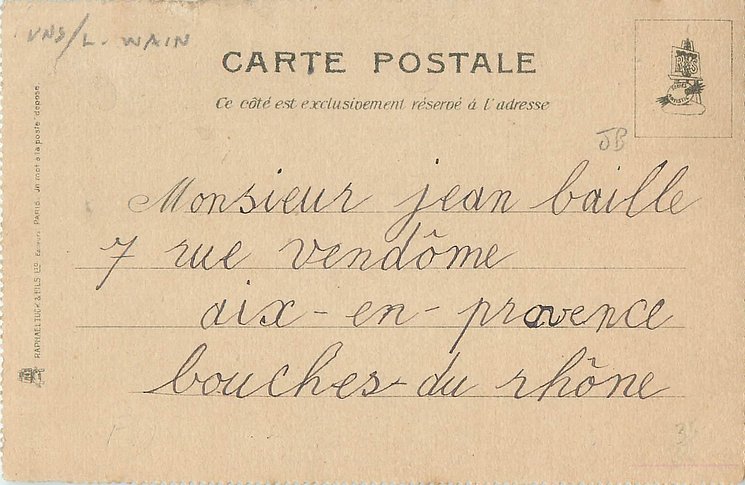 VNS/L. WAIN
CARTE POSTALE
Ce côté est exclusivement réservé à l'adresse
JB
Monsieur jean baille
7 rue vendôme
aix-en-provence
bouches-du rhône
RAPHAEL TUCK & FILS LTD. Editeurs PARIS. Un mot à la poste déposé.